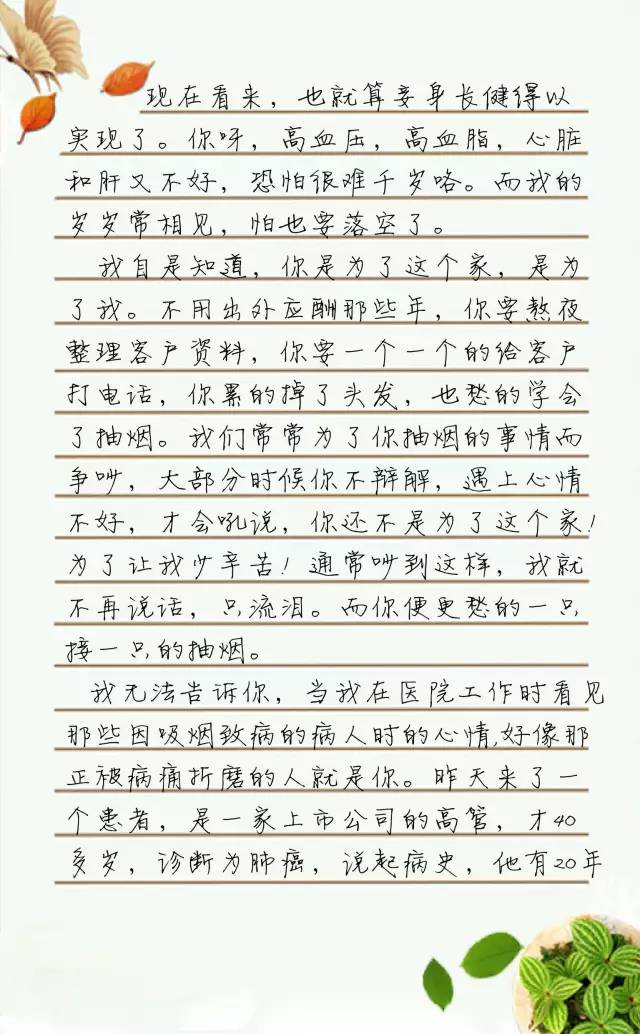 现在看来，也就算妾身长健得以
实现了。你呀，高血压，高血脂，心脏
和肝又不好，恐怕很难千岁咯。而我的
岁岁常相见，怕也要落空了。
我自是知道，你是为了这个家，是为
了我。不用出外应酬那些年，你要熬夜
整理客户资料，你要一个一个的给客户
打电话，你累的掉了头发，也愁的学会
了抽烟。我们常常为了你抽烟的事情而
争吵，大部分时候你不辩解，遇上心情
不好，才会吼说，你还不是为了这个家！
为了让我少辛苦！通常吵到这样，我就
不再说话，只流泪。而你便更愁的一只
接一只的抽烟。
我无法告诉你，当我在医院工作时看见
那些因吸烟致病的病人时的心情,好像那
正被病痛折磨的人就是你。昨天来了一
个患者，是一家上市公司的高管，才40
多岁，诊断为肺癌，说起病史，他有20年